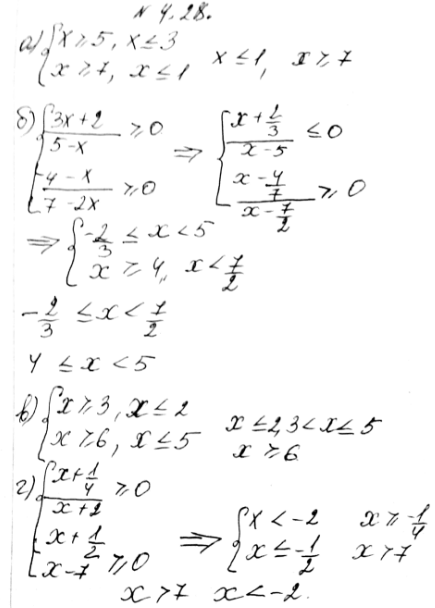 № 4.28.
а) { x ≥ 5, x ≤ 3
{ x ≥ 7, x ≤ 1 x ≤ 1, x ≥ 7
б) { (3x + 2)/(5 - x) ≥ 0 ⇒ { (x + 2/3)/(x - 5) ≤ 0
{ (4 - x)/(7 - 2x) ≥ 0 { (x - 4/7)/(x - 7/2) ≥ 0
⇒ { -2/3 ≤ x < 5
{ x ≥ 4, x < 7/2
-2/3 ≤ x < 7/2
4 ≤ x < 5
в) { x ≥ 3, x ≤ 2 x ≤ 2, 3 < x ≤ 5
{ x ≥ 6, x ≤ 5 x ≥ 6
г) { (x + 1/4)/(x + 2) ≥ 0 ⇒ { x < -2 x ≥ -1/4
{ (x + 1/2)/(x - 7) ≥ 0 { x ≤ -1/2 x > 7
x > 7 x < -2.